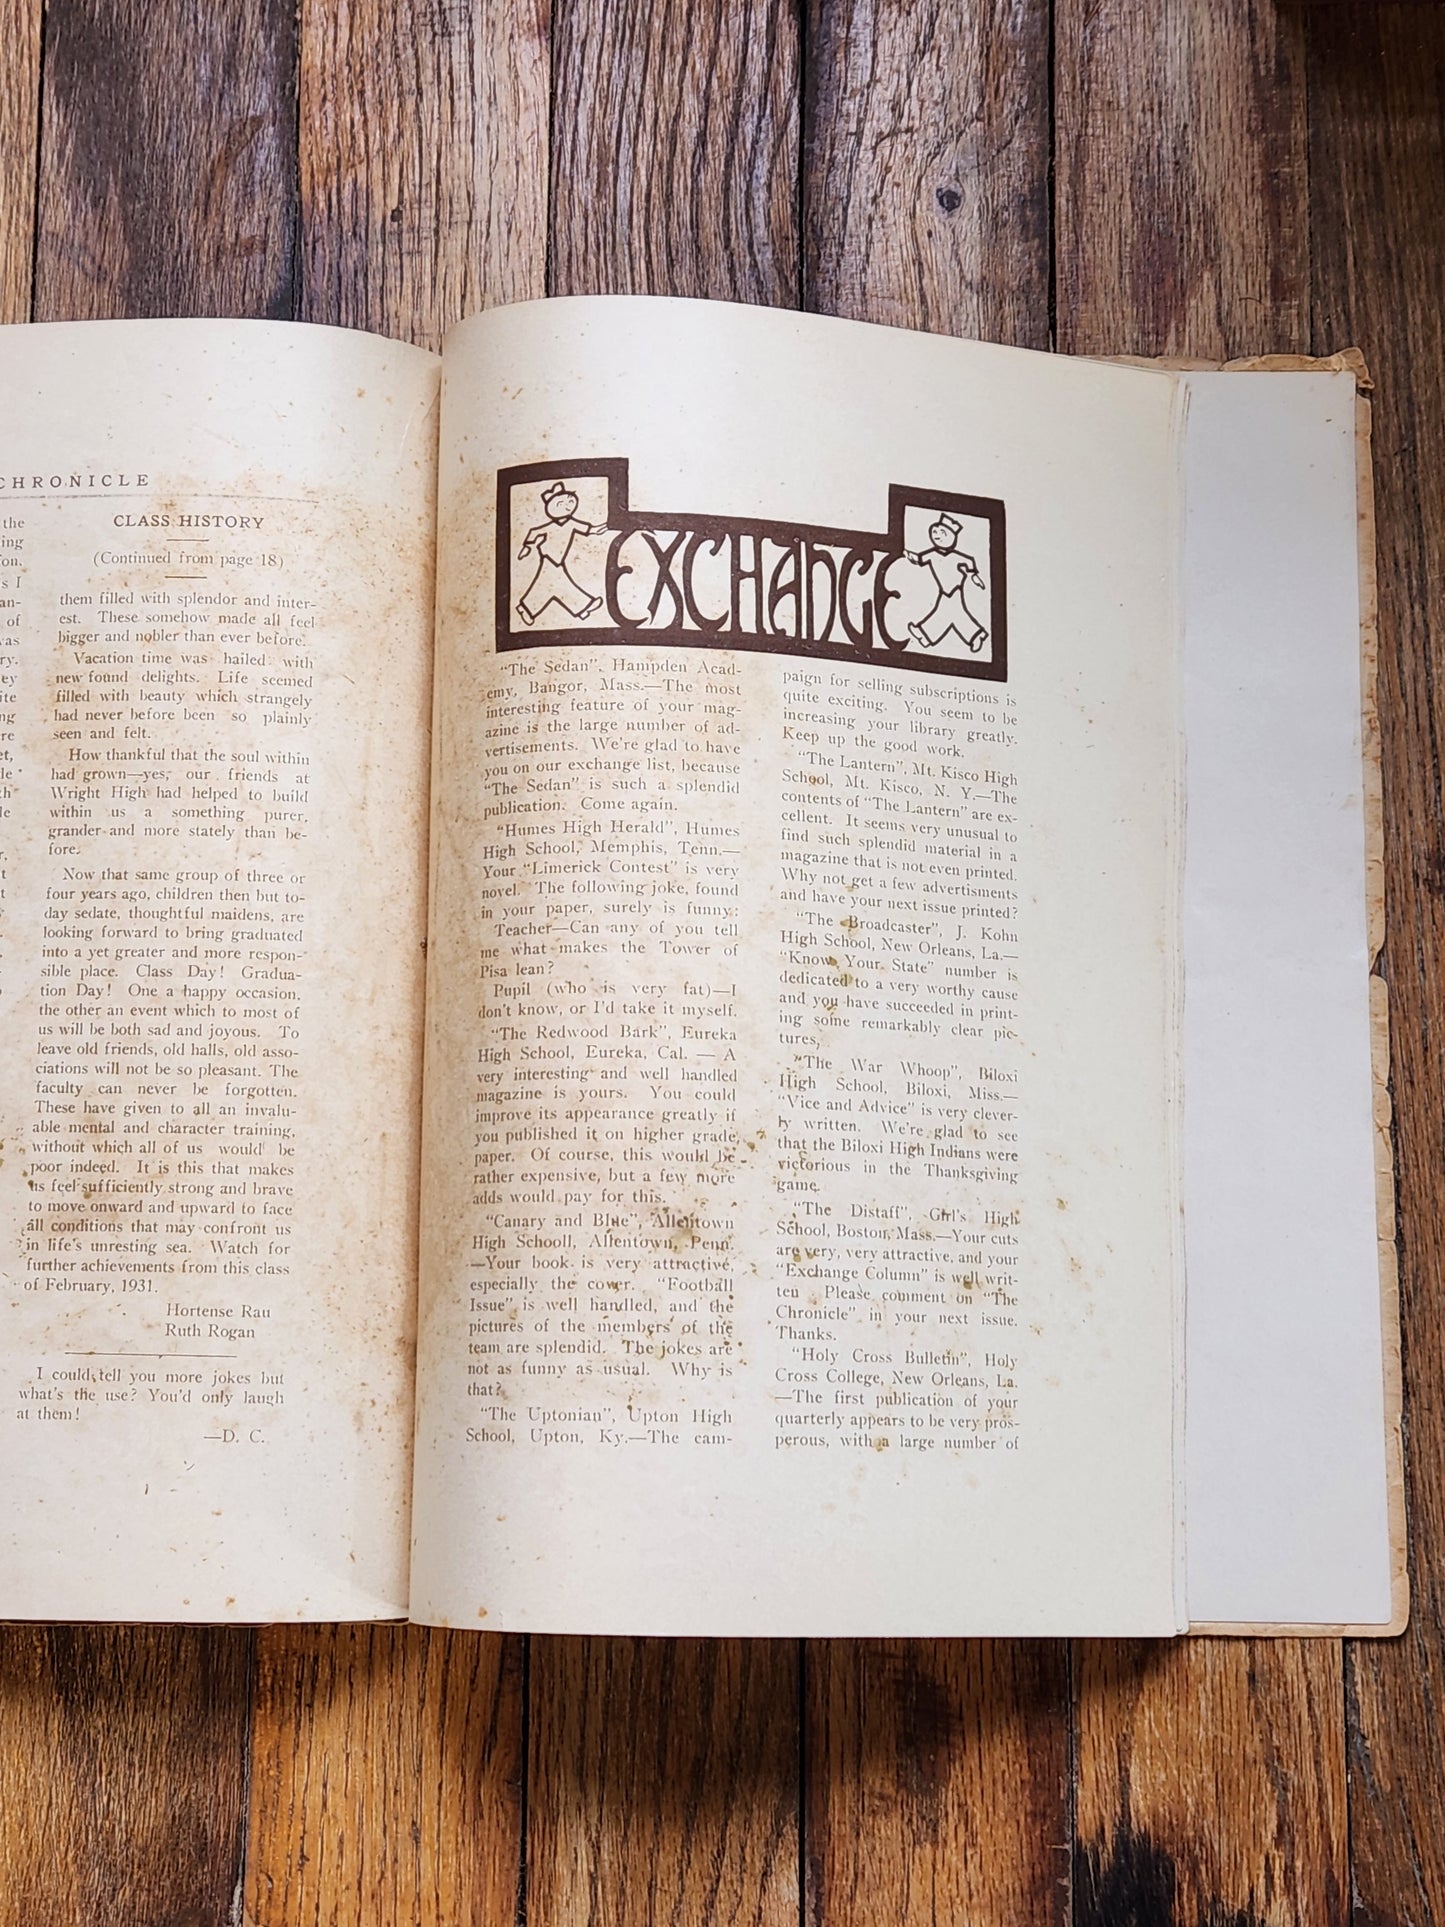 CHRONICLE
the
ing
on.
s I
an-
of
was
ry.
ey
ite
ng
re
et,
le
th
le
r,
t
t
CLASS HISTORY
(Continued from page 18)
them filled with splendor and inter-
est. These somehow made all feel
bigger and nobler than ever before.
Vacation time was hailed with
new found delights. Life seemed
filled with beauty which strangely
had never before been so plainly
seen and felt.
How thankful that the soul within
had grown—yes, our friends at
Wright High had helped to build
within us a something purer,
grander and more stately than be-
fore.
Now that same group of three or
four years ago, children then but to-
day sedate, thoughtful maidens, are
looking forward to bring graduated
into a yet greater and more respon-
sible place. Class Day! Gradua-
tion Day! One a happy occasion,
the other an event which to most of
us will be both sad and joyous. To
leave old friends, old halls, old asso-
ciations will not be so pleasant. The
faculty can never be forgotten.
These have given to all an invalu-
able mental and character training,
without which all of us would be
poor indeed. It is this that makes
us feel sufficiently strong and brave
to move onward and upward to face
all conditions that may confront us
in life's unresting sea. Watch for
further achievements from this class
of February, 1931.
Hortense Rau
Ruth Rogan
I could tell you more jokes but
what's the use? You'd only laugh
at them!
—D. C.
EXCHANGE
"The Sedan", Hampden Acad-
emy, Bangor, Mass.—The most
interesting feature of your mag-
azine is the large number of ad-
vertisements. We're glad to have
you on our exchange list, because
"The Sedan" is such a splendid
publication. Come again.
"Humes High Herald", Humes
High School, Memphis, Tenn.—
Your "Limerick Contest" is very
novel. The following joke, found
in your paper, surely is funny:
Teacher—Can any of you tell
me what makes the Tower of
Pisa lean?
Pupil (who is very fat)—I
don't know, or I'd take it myself.
"The Redwood Bark", Eureka
High School, Eureka, Cal. — A
very interesting and well handled
magazine is yours. You could
improve its appearance greatly if
you published it on higher grade
paper. Of course, this would be
rather expensive, but a few more
adds would pay for this.
"Canary and Blue", Allentown
High Schooll, Allentown, Penn.
—Your book is very attractive,
especially the cover. "Football
Issue" is well handled, and the
pictures of the members of the
team are splendid. The jokes are
not as funny as usual. Why is
that?
"The Uptonian", Upton High
School, Upton, Ky.—The cam-
paign for selling subscriptions is
quite exciting. You seem to be
increasing your library greatly.
Keep up the good work.
"The Lantern", Mt. Kisco High
School, Mt. Kisco, N. Y.—The
contents of "The Lantern" are ex-
cellent. It seems very unusual to
find such splendid material in a
magazine that is not even printed.
Why not get a few advertisments
and have your next issue printed?
"The Broadcaster", J. Kohn
High School, New Orleans, La.—
"Know Your State" number is
dedicated to a very worthy cause
and you have succeeded in print-
ing some remarkably clear pic-
tures,
"The War Whoop", Biloxi
High School, Biloxi, Miss.—
"Vice and Advice" is very clever-
ly written. We're glad to see
that the Biloxi High Indians were
victorious in the Thanksgiving
game.
"The Distaff", Girl's High
School, Boston, Mass.—Your cuts
are very, very attractive, and your
"Exchange Column" is well writ-
ten Please comment on "The
Chronicle" in your next issue.
Thanks.
"Holy Cross Bulletin", Holy
Cross College, New Orleans, La.
—The first publication of your
quarterly appears to be very pros-
perous, with a large number of